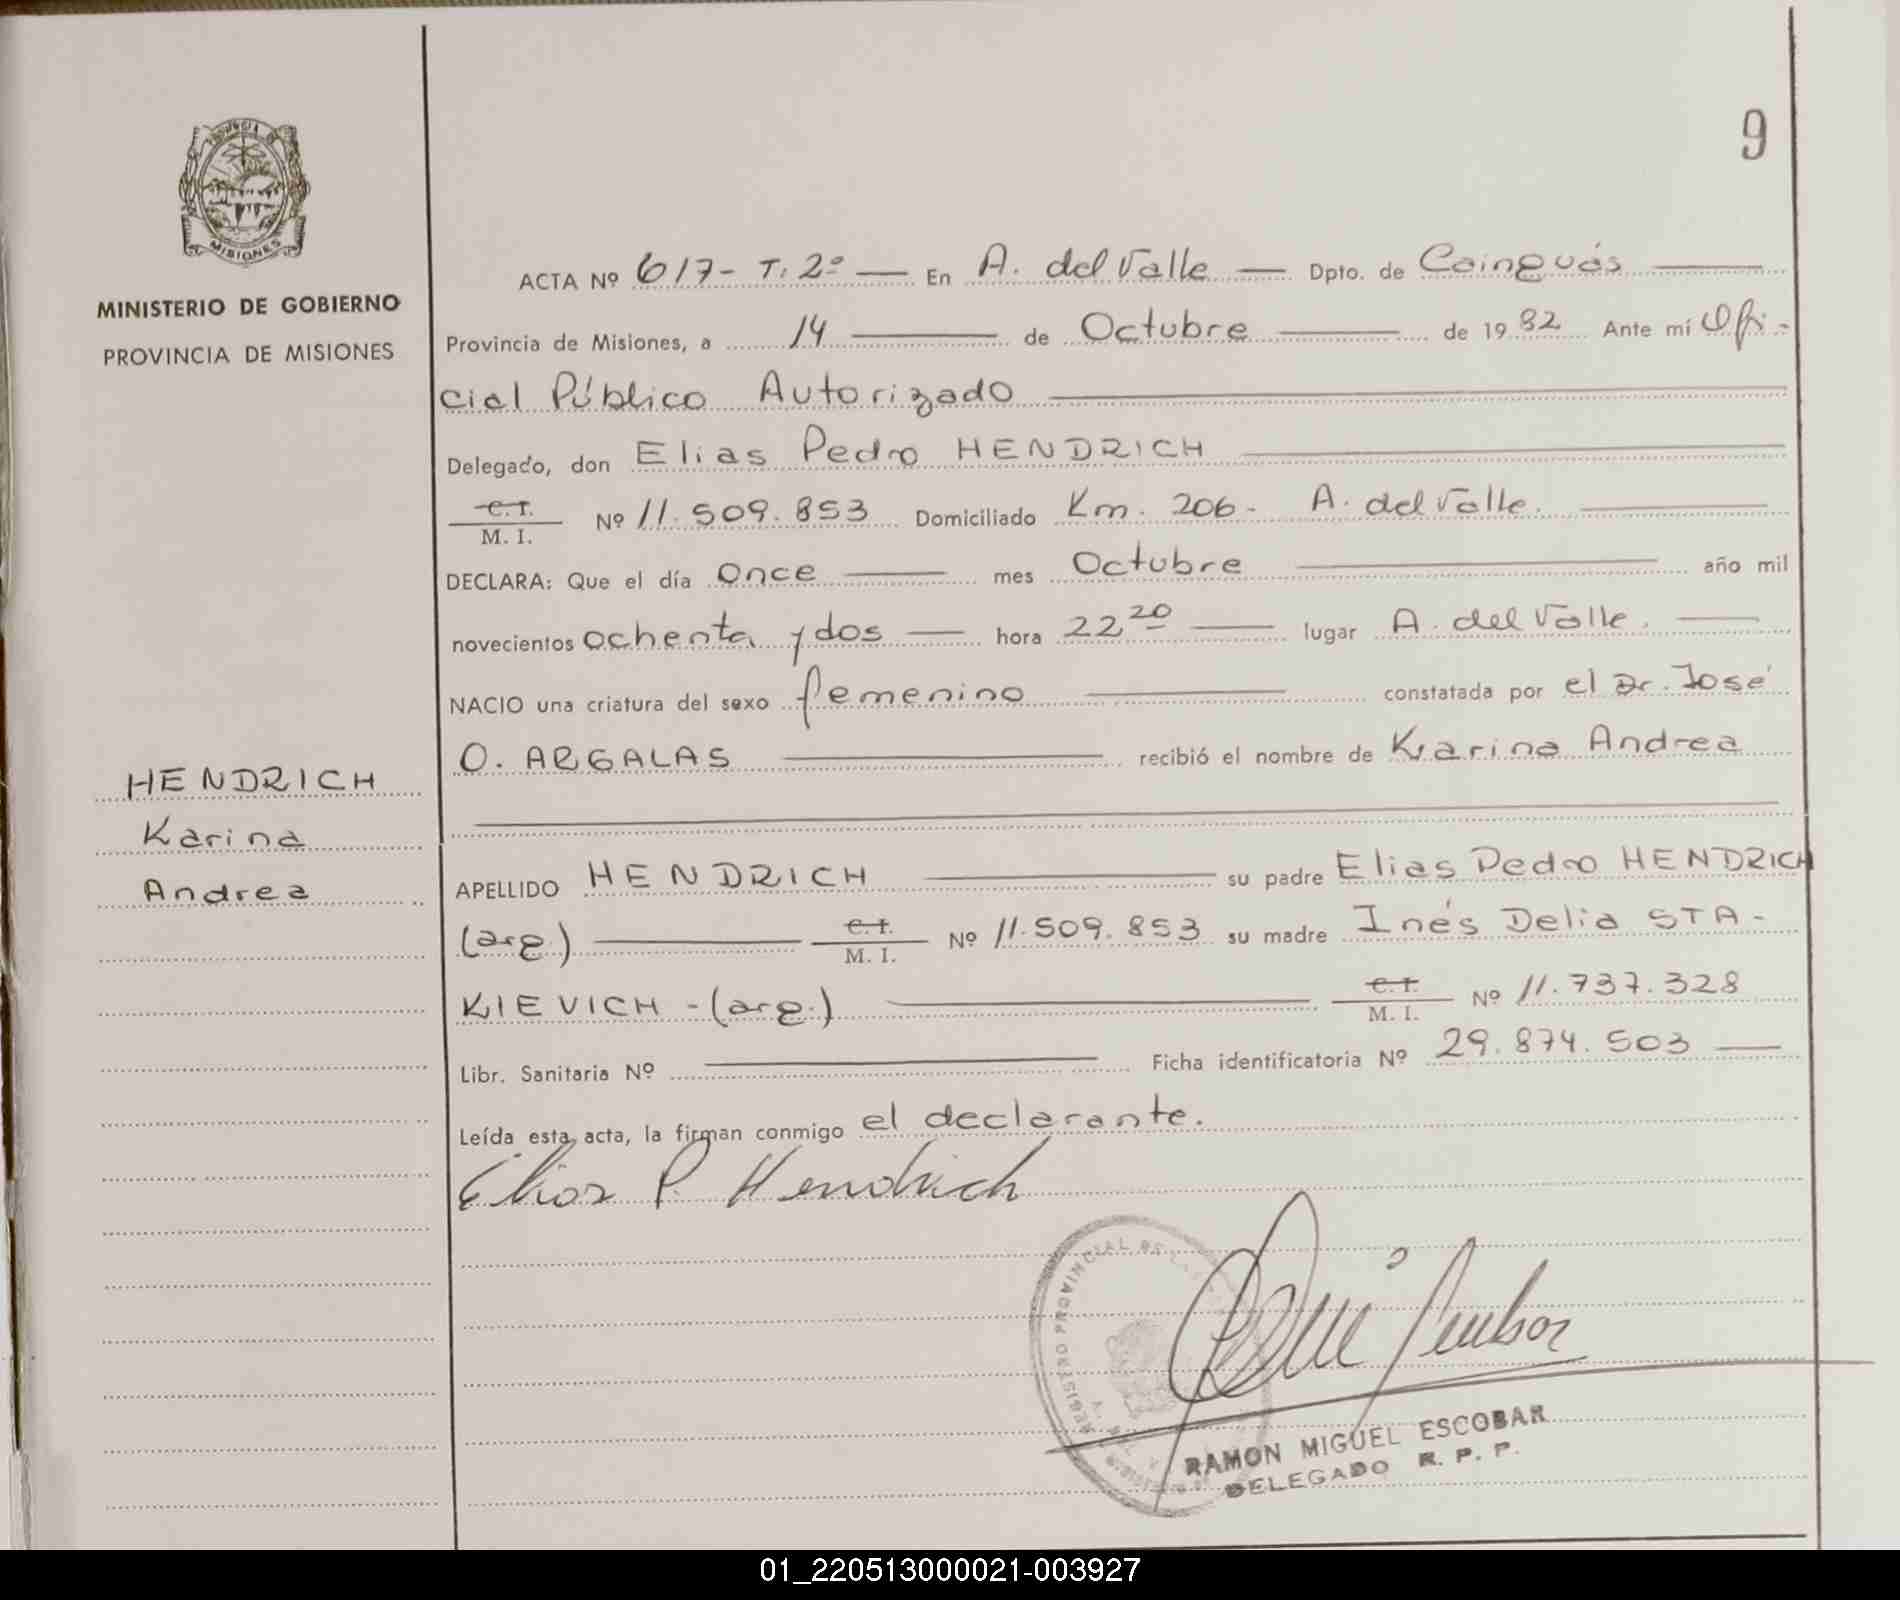 9
PROVINCIA DE
MISIONES
MINISTERIO DE GOBIERNO
PROVINCIA DE MISIONES
HENDRICH
Karina
Andrea
ACTA Nº 617- T. 2º — En A. del Valle — Dpto. de Cainguás
Provincia de Misiones, a 14 de Octubre de 1982 Ante mí Ofi-
cial Público Autorizado
Delegado, don Elias Pedro HENDRICH
C.I.
M. I. Nº 11.509.853 Domiciliado Km. 206- A. del Valle.
DECLARA: Que el día Once mes Octubre año mil
novecientos ochenta y dos — hora 22 20 lugar A. del Valle.
NACIO una criatura del sexo femenino constatada por el Dr. José
O. ARGALAS recibió el nombre de Karina Andrea
APELLIDO HENDRICH su padre Elias Pedro HENDRICH
(arg.) C.I. M. I. Nº 11.509.853 su madre Inés Delia STA-
KIEVICH -(arg.) C.I. M. I. Nº 11.737.328
Libr. Sanitaria Nº Ficha identificatoria Nº 29.874.503
Leída esta acta, la firman conmigo el declarante.
Elias P. Hendrich
REGISTRO PROVINCIAL DE
RAMON MIGUEL ESCOBAR
DELEGADO R. P. P.
01_220513000021-003927